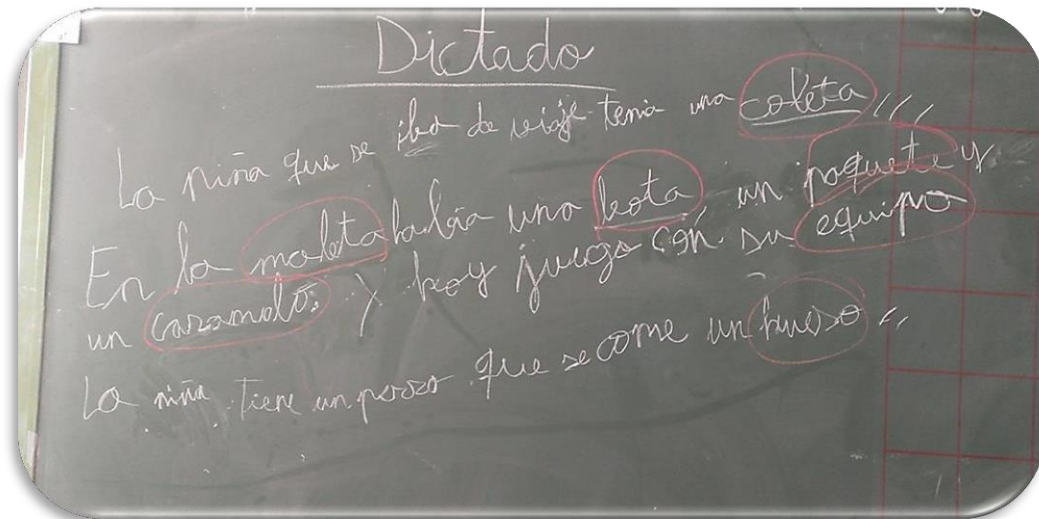 Dictado
La niña que se iba de viaje tenia una coleta
En la maleta había una bota un paquete y
un caramelo y hoy juego con su equipo
La niña tiene un perro que se come un hueso